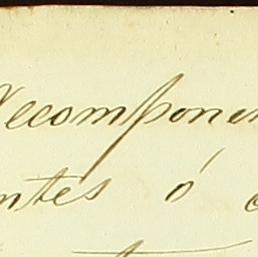 Recomponen
ntes ó c